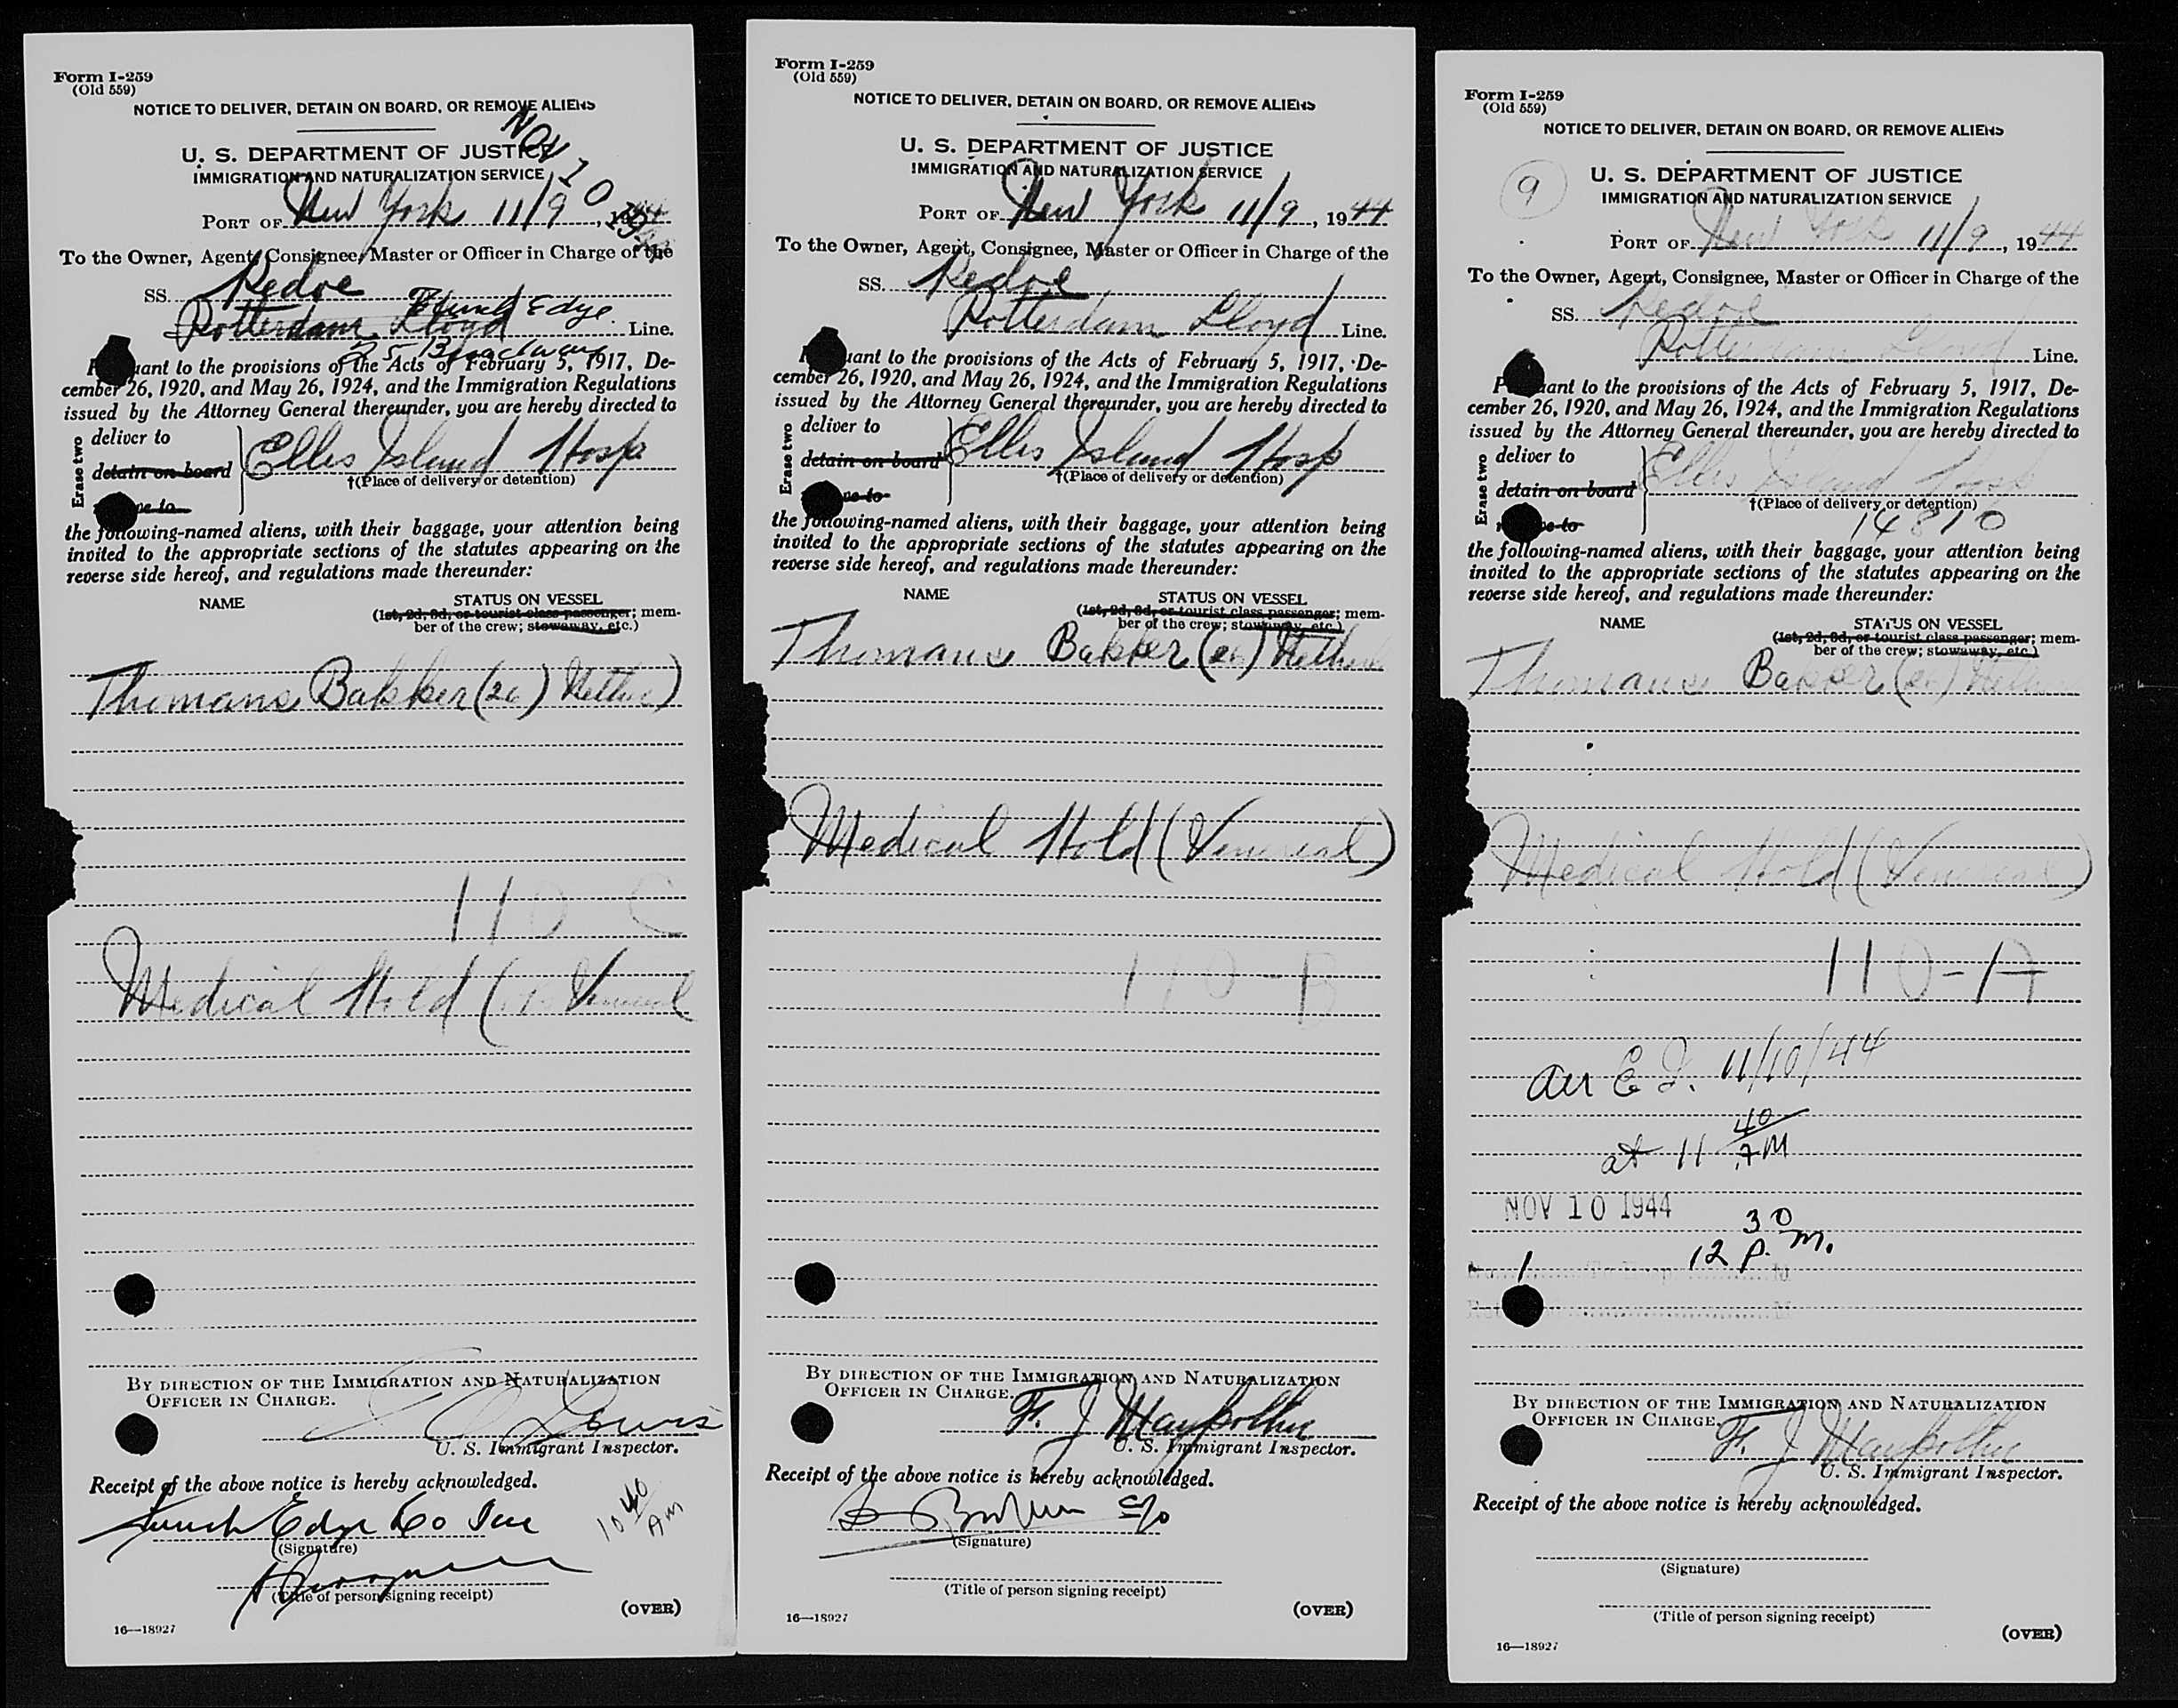 Form I-259
(Old 559)
NOTICE TO DELIVER, DETAIN ON BOARD, OR REMOVE ALIENS
U. S. DEPARTMENT OF JUSTICE
IMMIGRATION AND NATURALIZATION SERVICE
NOV 10 1944
PORT OF New York 11/9, 1944
To the Owner, Agent, Consignee, Master or Officer in Charge of the
SS. Kedoe
Funch Edge
Rotterdam Lloyd Line.
25 Broadway
uant to the provisions of the Acts of February 5, 1917, De-
cember 26, 1920, and May 26, 1924, and the Immigration Regulations
issued by the Attorney General thereunder, you are hereby directed to
Erase two
deliver to
detain on board
Ellis Island Hosp
†(Place of delivery or detention)
ve to
the following-named aliens, with their baggage, your attention being
invited to the appropriate sections of the statutes appearing on the
reverse side hereof, and regulations made thereunder:
NAME STATUS ON VESSEL
(1st, 2d, 3d, or tourist class passenger; mem-
ber of the crew; stowaway, etc.)
Thomans Bakker (20)
110 C
Medical Hold ( Venereal
BY DIRECTION OF THE IMMIGRATION AND NATURALIZATION
OFFICER IN CHARGE.
Lewis
U. S. Immigrant Inspector.
Receipt of the above notice is hereby acknowledged.
Funch Edge Co Inc
10 40 AM
(Signature)
(Title of person signing receipt)
(OVER)
16—18927
Form I-259
(Old 559)
NOTICE TO DELIVER, DETAIN ON BOARD, OR REMOVE ALIENS
U. S. DEPARTMENT OF JUSTICE
IMMIGRATION AND NATURALIZATION SERVICE
PORT OF New York 11/9, 1944
To the Owner, Agent, Consignee, Master or Officer in Charge of the
SS. Kedoe
Rotterdam Lloyd Line.
uant to the provisions of the Acts of February 5, 1917, De-
cember 26, 1920, and May 26, 1924, and the Immigration Regulations
issued by the Attorney General thereunder, you are hereby directed to
Erase two
deliver to
detain on board
Ellis Island Hosp
†(Place of delivery or detention)
ve to
the following-named aliens, with their baggage, your attention being
invited to the appropriate sections of the statutes appearing on the
reverse side hereof, and regulations made thereunder:
NAME STATUS ON VESSEL
(1st, 2d, 3d, or tourist class passenger; mem-
ber of the crew; stowaway, etc.)
Thomans Bakker (20) Nether
Medical Hold (Venereal)
110-B
BY DIRECTION OF THE IMMIGRATION AND NATURALIZATION
OFFICER IN CHARGE.
F. J.
U. S. Immigrant Inspector.
Receipt of the above notice is hereby acknowledged.
c/o
(Signature)
(Title of person signing receipt)
(OVER)
16—18927
Form I-259
(Old 559)
NOTICE TO DELIVER, DETAIN ON BOARD, OR REMOVE ALIENS
9
U. S. DEPARTMENT OF JUSTICE
IMMIGRATION AND NATURALIZATION SERVICE
PORT OF New York 11/9, 1944
To the Owner, Agent, Consignee, Master or Officer in Charge of the
SS. Kedoe
Rotterdam Lloyd Line.
P uant to the provisions of the Acts of February 5, 1917, De-
cember 26, 1920, and May 26, 1924, and the Immigration Regulations
issued by the Attorney General thereunder, you are hereby directed to
Erase two
deliver to
detain on board
Ellis Island Hosp
†(Place of delivery or detention)
ve to
14810
the following-named aliens, with their baggage, your attention being
invited to the appropriate sections of the statutes appearing on the
reverse side hereof, and regulations made thereunder:
NAME STATUS ON VESSEL
(1st, 2d, 3d, or tourist class passenger; mem-
ber of the crew; stowaway, etc.)
Thomans Bakker (20) Neth
Medical Hold (Venereal)
110-A
arr E I. 11/10/44
at 11 40 AM
NOV 10 1944
12 30 P. M.
1 To Hosp M
M
BY DIRECTION OF THE IMMIGRATION AND NATURALIZATION
OFFICER IN CHARGE.
F. J.
U. S. Immigrant Inspector.
Receipt of the above notice is hereby acknowledged.
(Signature)
(Title of person signing receipt)
(OVER)
16—18927